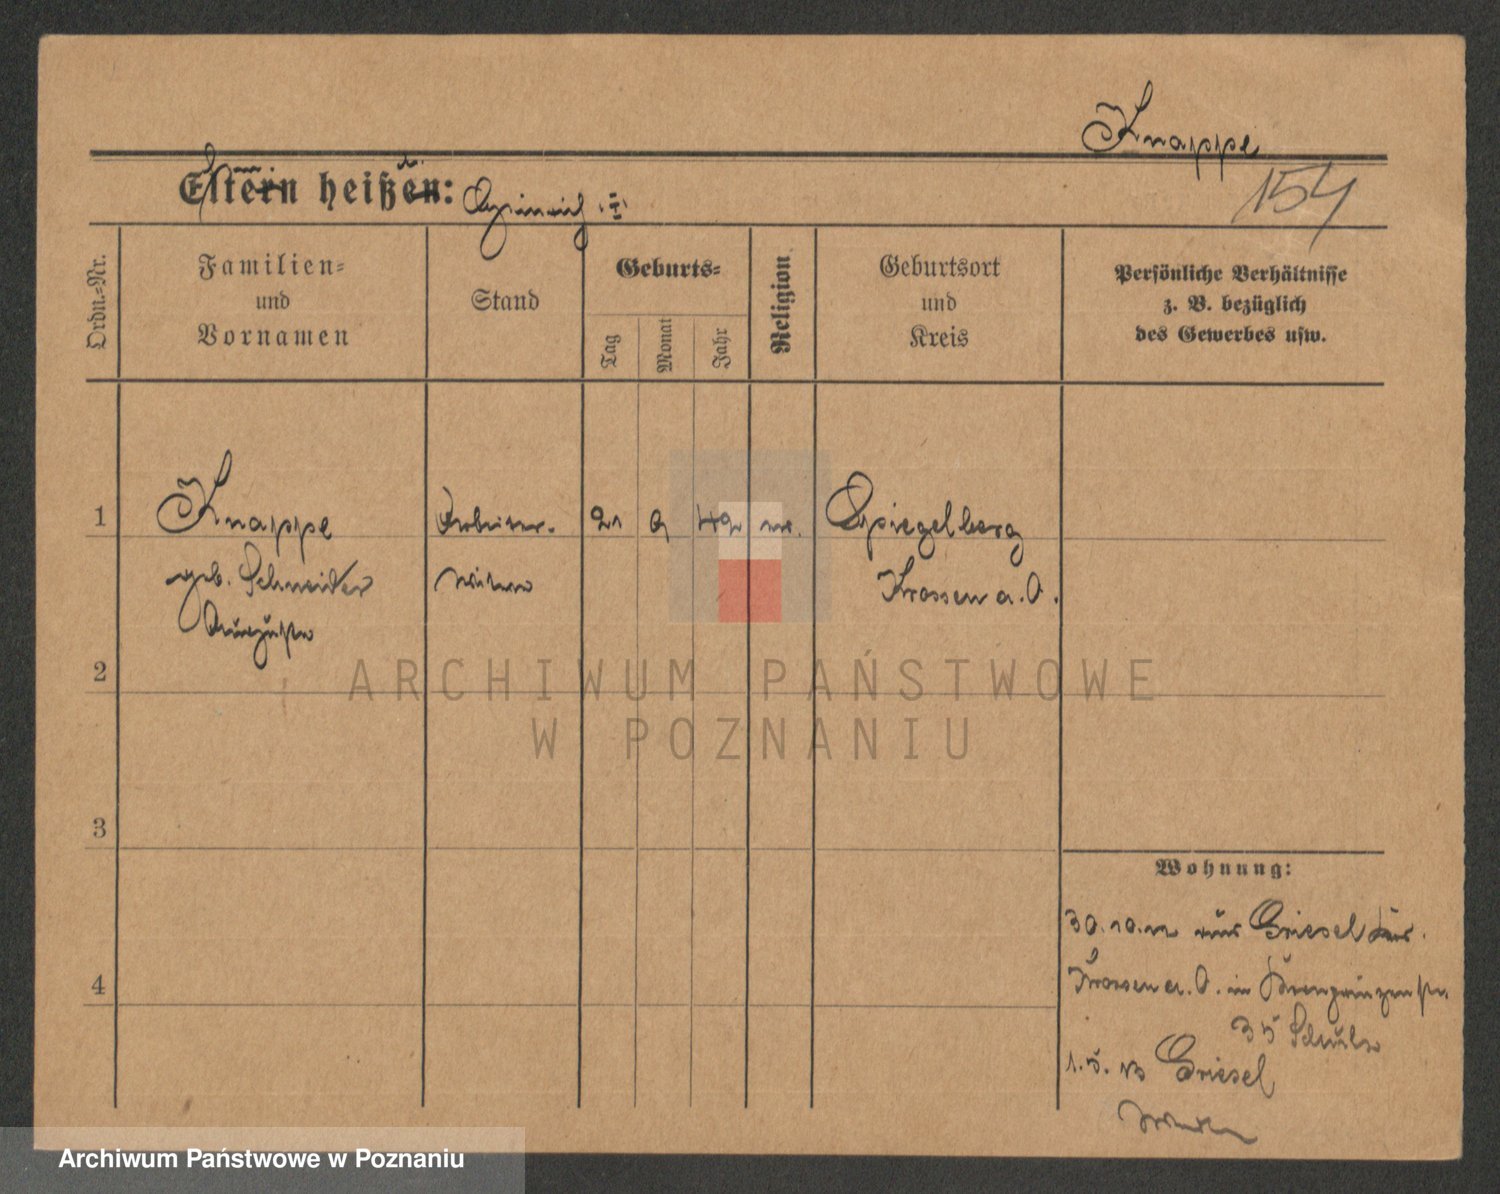 Knappe
Eltern heißen:
154
Ordn.-Nr.
Familien-
und
Vornamen
Stand
Geburts-
Tag
Monat
Jahr
Religion.
Geburtsort
und
Kreis
Persönliche Verhältnisse
z. B. bezüglich
des Gewerbes usw.
1
Knappe
Arbeiter-
21
9
42
Spiegelberg
geb. Schneider
witwe
Krossen a. O.
Auguste
2
ARCHIWUM PAŃSTWOWE
W POZNANIU
3
Wohnung:
30.10.12 aus Griesel Krs.
4
Krossen a. O. in Kronprinzenstr.
35 Schulz
1.5.13 Griesel
Archiwum Państwowe w Poznaniu